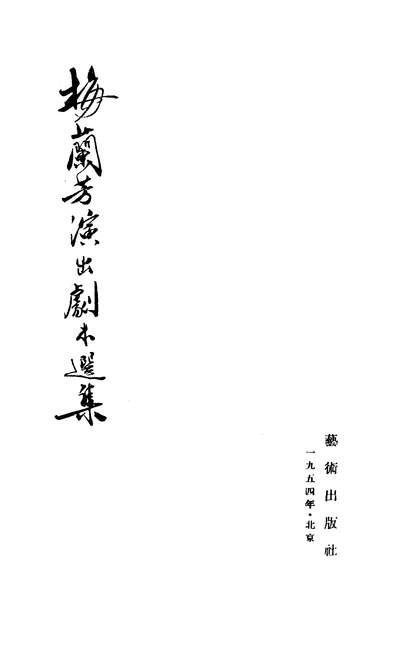 梅蘭芳演出劇本選集
藝術出版社
一九五四年·北京